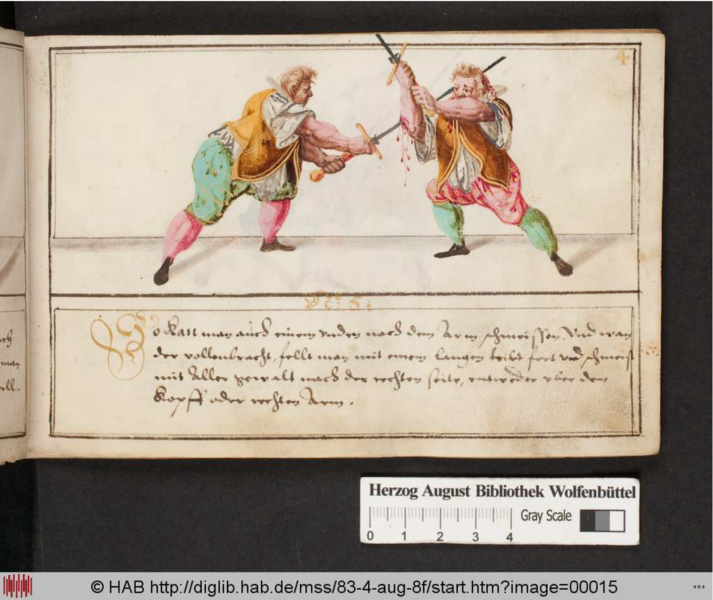 4
So kan man auch einem unden nach dem Arm schmeissen, Und wan
der vollenbracht, fellt man mit einem langen fort und schmeist
mit Aller gewalt nach der rechten seite, entweder uber den
Kopff oder rechten Arm.
Herzog August Bibliothek Wolfenbüttel
0 1 2 3 4 Gray Scale
© HAB http://diglib.hab.de/mss/83-4-aug-8f/start.htm?image=00015